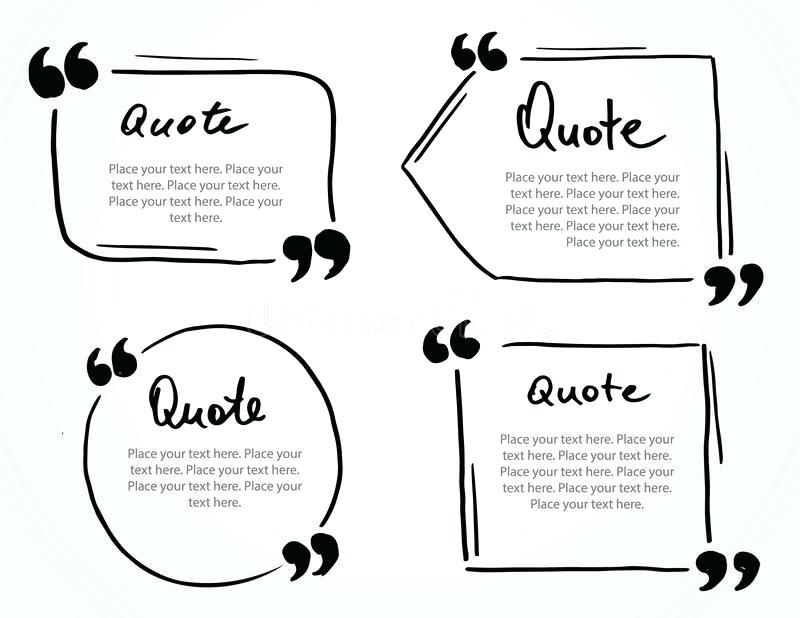 Quote
Place your text here. Place your
text here. Place your text here.
Place your text here. Place your
text here.
Quote
Place your text here. Place your
text here. Place your text here.
Place your text here. Place your
text here. Place your text here.
Place your text here.
Quote
Place your text here. Place your
text here. Place your text here.
Place your text here. Place your
text here.
Quote
Place your text here. Place your
text here. Place your text here.
Place your text here. Place your
text here. Place your text here.
Place your text here.